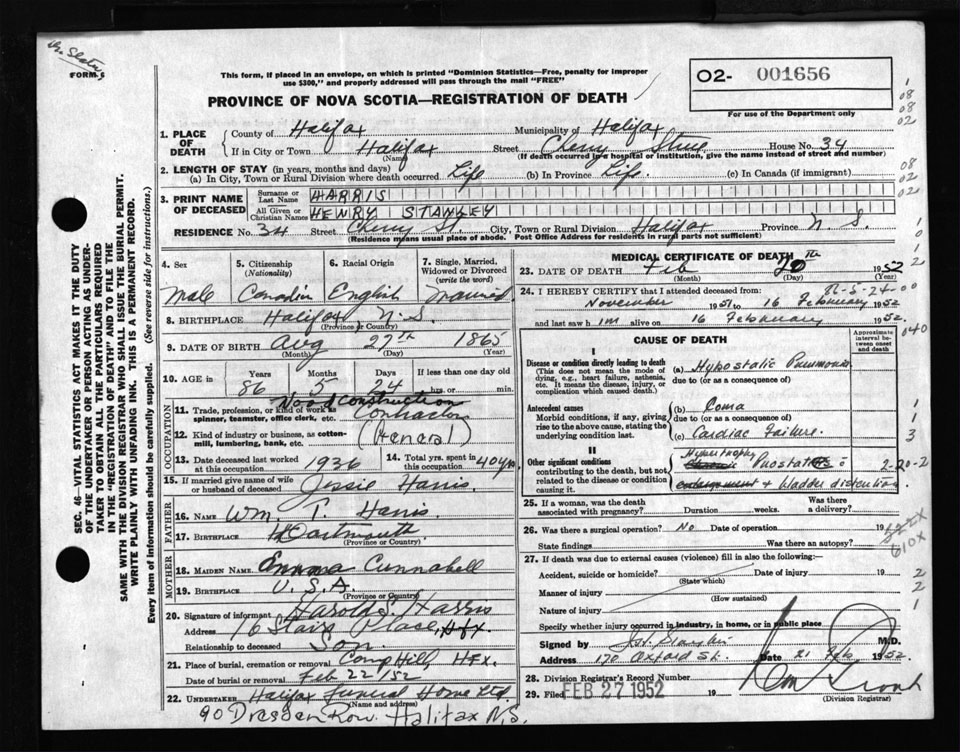 FORM 6
This form, if placed in an envelope, on which is printed "Dominion Statistics—Free, penalty for improper
use $300," and properly addressed will pass through the mail "FREE"
PROVINCE OF NOVA SCOTIA—REGISTRATION OF DEATH
02- 001656
For use of the Department only
1. PLACE OF DEATH
County of Halifax Municipality of Halifax
If in City or Town Halifax Street Cherry Street House No. 34
(Name) (If death occurred in a hospital or institution, give the name instead of street and number)
2. LENGTH OF STAY (in years, months and days)
(a) In City, Town or Rural Division where death occurred Life (b) In Province Life. (c) In Canada (if immigrant)
3. PRINT NAME OF DECEASED
Surname or Last Name HARRIS
All Given or Christian Names HENRY STANLEY
RESIDENCE No. 34 Street Cherry St. City, Town or Rural Division Halifax Province N.S.
(Residence means usual place of abode. Post Office Address for residents in rural parts not sufficient)
4. Sex Male
5. Citizenship (Nationality) Canadian
6. Racial Origin English
7. Single, Married, Widowed or Divorced (write the word) Married
8. BIRTHPLACE Halifax N.S.
(Province or Country)
9. DATE OF BIRTH Aug 27TH 1865
(Month) (Day) (Year)
10. AGE in Years Months Days If less than one day old
86 5 24 hrs. or min.
OCCUPATION
Wood Construction
11. Trade, profession, or kind of work as spinner, teamster, office clerk, etc. Contractor
12. Kind of industry or business, as cotton-mill, lumbering, bank, etc. (General)
13. Date deceased last worked at this occupation 1936
14. Total yrs. spent in this occupation 40 yrs
15. If married give name of wife or husband of deceased Jessie Harris
FATHER
16. NAME Wm. T. Harris
17. BIRTHPLACE Dartmouth
(Province or Country)
MOTHER
18. MAIDEN NAME Emma Cunnabell
19. BIRTHPLACE U.S.A.
(Province or Country)
20. Signature of informant Harold S. Harris
Address 16 Stairs Place, Hfx
Relationship to deceased Son
21. Place of burial, cremation or removal Camp Hill, Hfx.
Date of burial or removal Feb 22/52
22. UNDERTAKER Halifax Funeral Home Ltd.
(Name and address)
90 Dresden Row. Halifax N.S.
MEDICAL CERTIFICATE OF DEATH
23. DATE OF DEATH Feb 20TH 1952
(Month) (Day) (Year)
86-5-24-00
24. I HEREBY CERTIFY that I attended deceased from:
November 1951 to 16 February 1952
and last saw him alive on 16 February 1952.
CAUSE OF DEATH
Approximate interval between onset and death
I
Disease or condition directly leading to death
(This does not mean the mode of dying, e.g., heart failure, asthenia, etc. It means the disease, injury, or complication which caused death.)
(a) Hypostatic Pneumonia
due to (or as a consequence of)
Antecedent causes
Morbid conditions, if any, giving rise to the above cause, stating the underlying condition last.
(b) Coma
due to (or as a consequence of)
(c) Cardiac Failure.
II
Other significant conditions
contributing to the death, but not related to the disease or condition causing it.
Hypertrophy
Prostate
enlargement & bladder distention
25. If a woman, was the death associated with pregnancy? Duration weeks. Was there a delivery?
26. Was there a surgical operation? No Date of operation 19
State findings Was there an autopsy?
610X
27. If death was due to external causes (violence) fill in also the following:—
Accident, suicide or homicide? Date of injury 19
(State which)
Manner of injury
(How sustained)
Nature of injury
Specify whether injury occurred in industry, in home, or in public place
Signed by M.D.
Address 170 Oxford St. Date 21 Feb 1952.
28. Division Registrar's Record Number
29. Filed FEB 27 1952 19
(Division Registrar)
SEC. 46—VITAL STATISTICS ACT MAKES IT THE DUTY
OF THE UNDERTAKER OR PERSON ACTING AS UNDER-
TAKER TO OBTAIN ALL THE PARTICULARS REQUIRED
IN THE "REGISTRATION OF DEATH" AND TO FILE THE
SAME WITH THE DIVISION REGISTRAR WHO SHALL ISSUE THE BURIAL PERMIT.
WRITE PLAINLY WITH UNFADING INK. THIS IS A PERMANENT RECORD.
Every item of information should be carefully supplied. (See reverse side for instructions.)